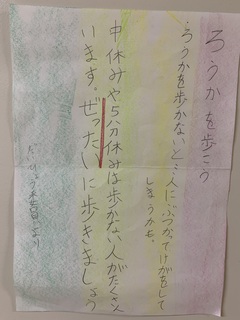 ろうかを歩こう
ろうかを歩かないと、人にぶつかってけがをして
しまうかも。
中休みや5分休みは歩かない人がたくさん
います。ぜったいに歩きましょう
より